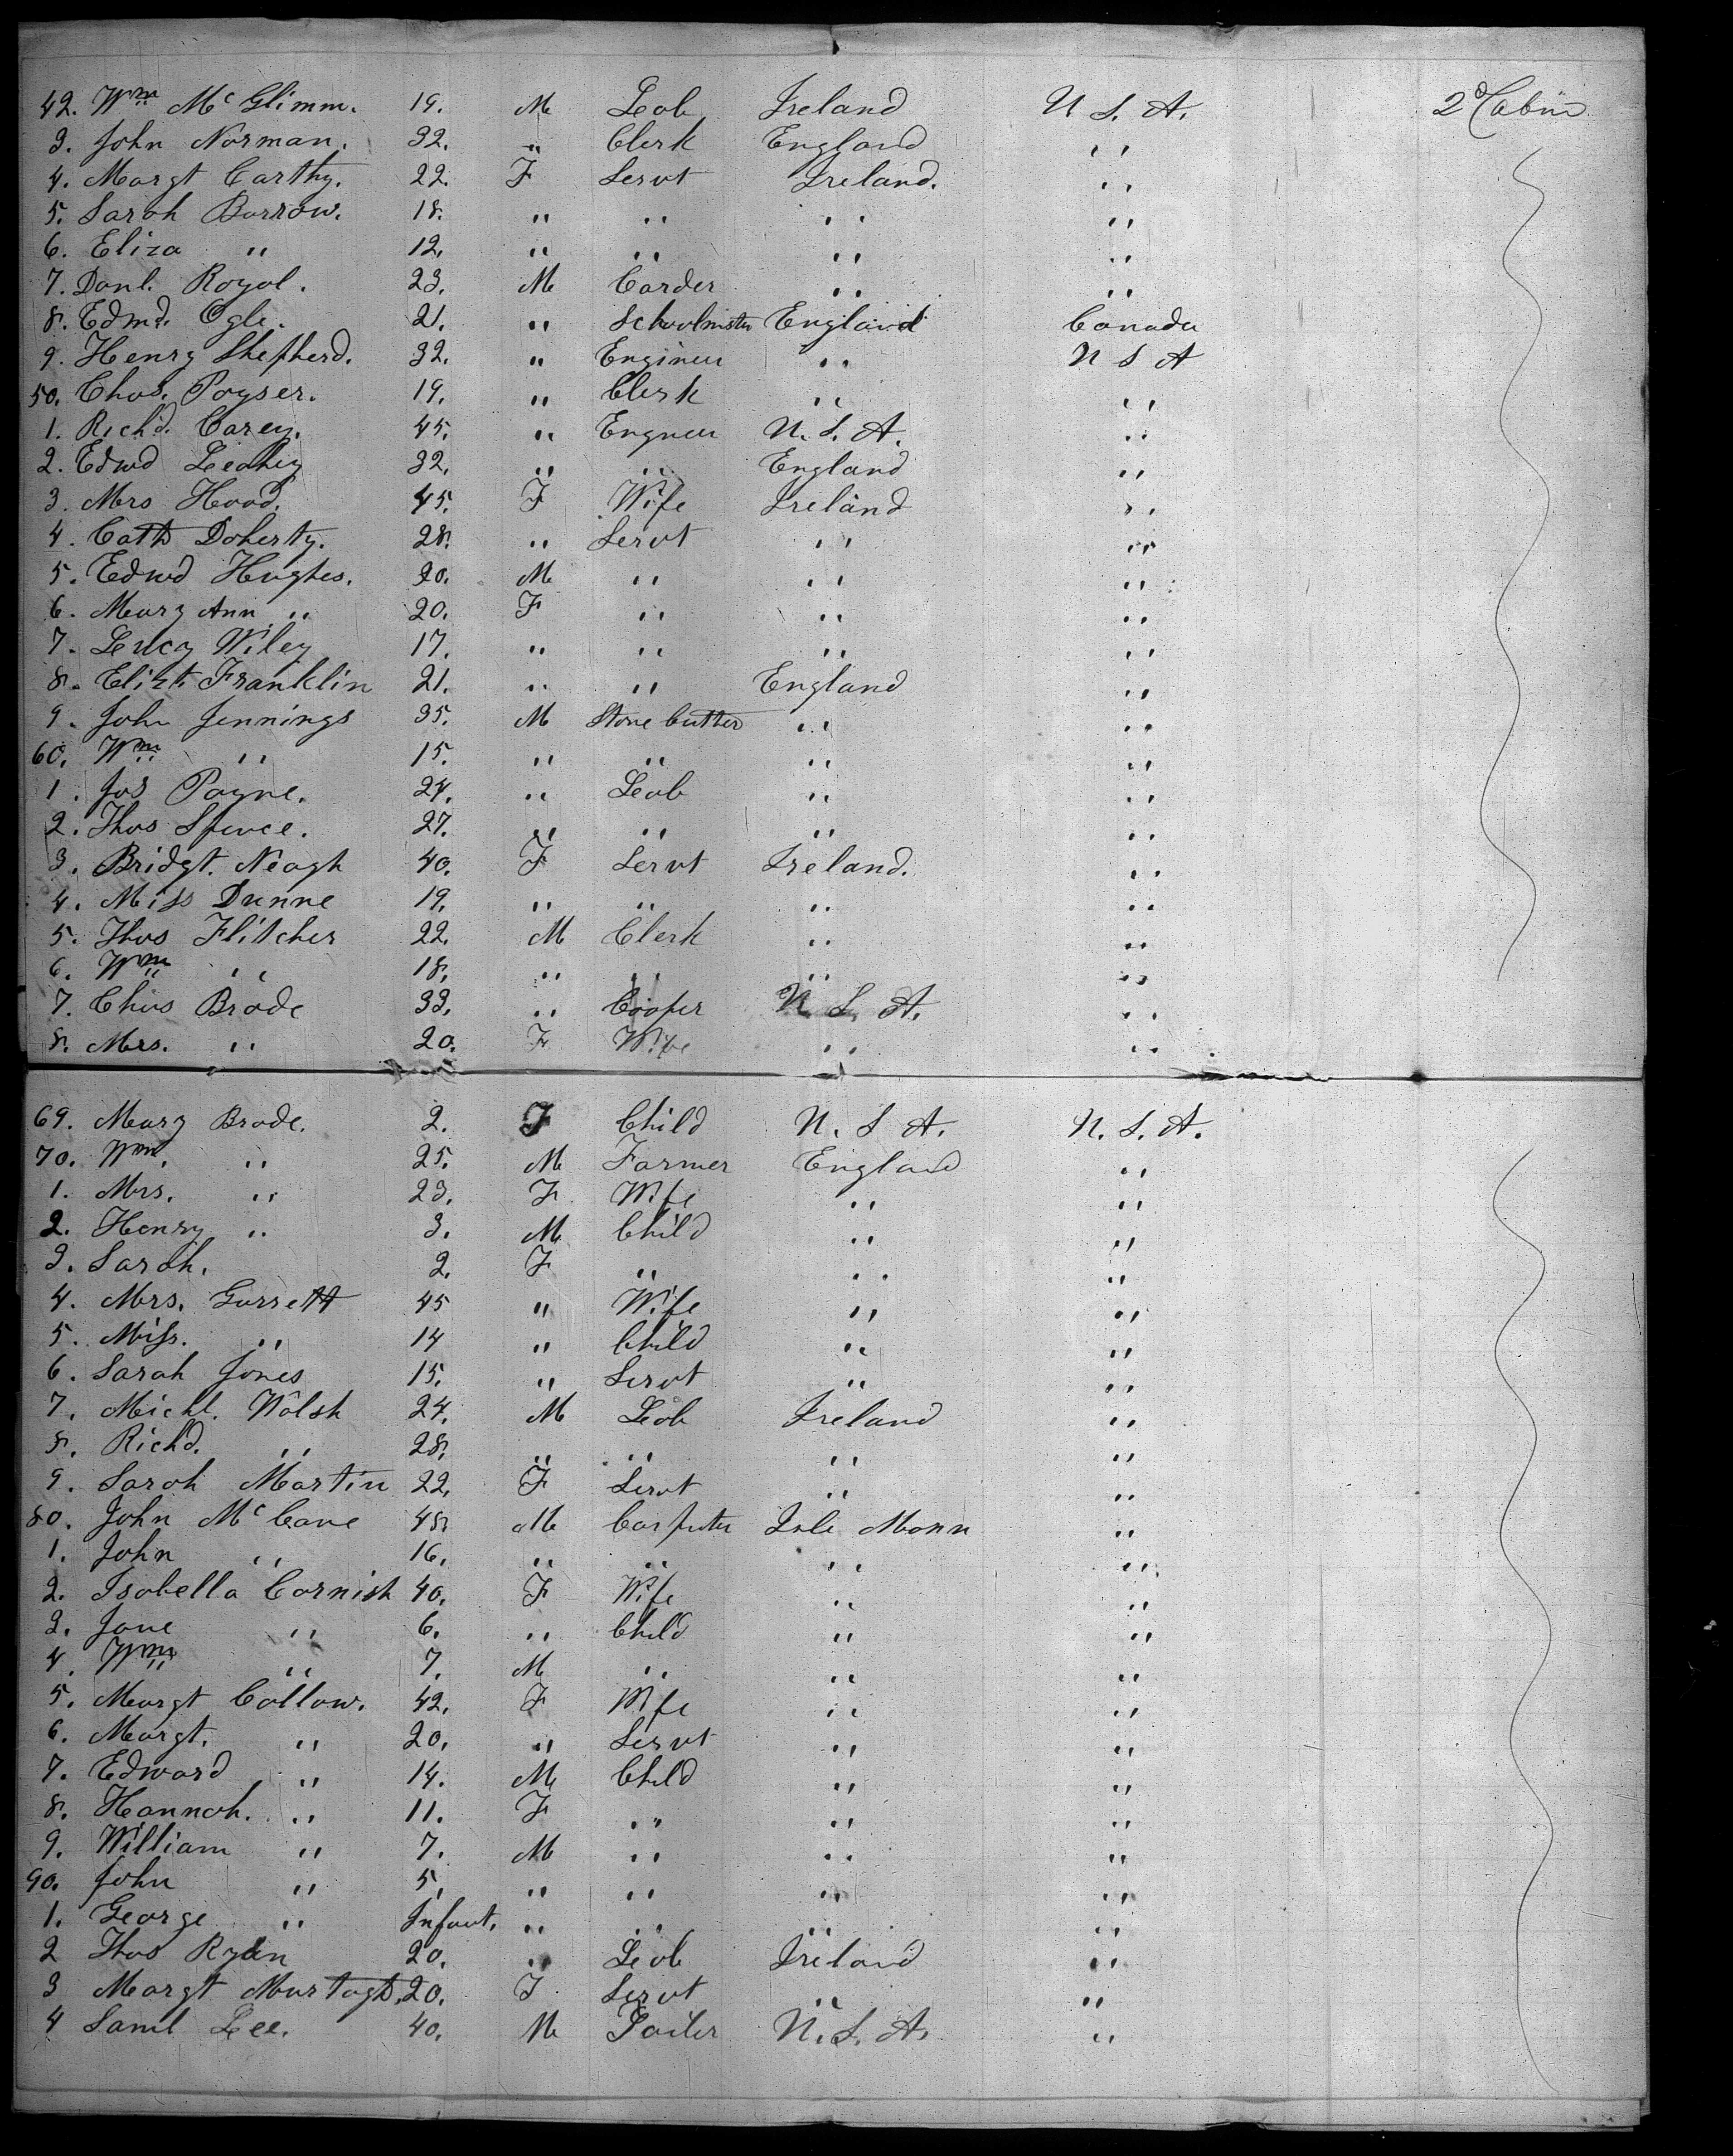 42. Wm Mc Glimm. 19. M Lab Ireland U S. A. 2d Cabin
3. John Norman. 32. " Clerk England "
4. Margt Carthy. 22. F Servt Ireland. "
5. Sarah Barrow. 18. " " " "
6. Eliza " 12. " " " "
7. Danl. Royal. 23. M Carder " "
8. Edmd. Ogle. 21. " Schoolmstr England Canada
9. Henry Shepherd. 32. " Engineer " U S A
50. Chas. Poyser. 19. " Clerk " "
1. Richd. Carey. 45. " Engneer U. S. A. "
2. Edwd Leahey 32. " " England "
3. Mrs Hood. 45. F Wife Ireland "
4. Cath Doherty. 28. " Servt " "
5. Edwd Hughes. 20. M " " "
6. Mary Ann " 20. F " " "
7. Lucy Wiley 17. " " " "
8. Elizt. Franklin 21. " " England "
9. John Jennings 35. M Stone Cutter " "
60. Wm " 15. " " " "
1. Jos Payne. 24. " Lab " "
2. Thos Spence. 27. " " " "
3. Bridgt. Neagh 40. F Servt Ireland. "
4. Miss Dunne 19. " " " "
5. Thos Flitcher 22. M Clerk " "
6. Wm " 18. " " " "
7. Chas Brode 33. " Cooper U S. A. "
8. Mrs. " 20. F Wife " "
69. Mary Brode. 2. F Child U. S A. U. S. A.
70. Wm. " 25. M Farmer England "
1. Mrs. " 23. F Wife " "
2. Henry " 3. M Child " "
3. Sarah. 2. F " " "
4. Mrs. Garrett 45 " Wife " "
5. Miss. " 14 " Child " "
6. Sarah Jones 15. " Servt " "
7. Michl. Walsh 24. M Lab Ireland "
8. Richd. " 28. " " " "
9. Sarah Martin 22. F Servt " "
80. John Mc Cane 48. M Carpnter Isle Mann "
1. John " 16. " " " "
2. Isabella Cornish 40. F Wife " "
3. Jane " 6. " Child " "
4. Wm " 7. M " " "
5. Margt Collow. 42. F Wife " "
6. Margt. " 20. " Servt " "
7. Edward " 14. M Child " "
8. Hannah. " 11. F " " "
9. William " 7. M " " "
90. John " 5. " " " "
1. George " Infant. " " " "
2 Thos Ryan 20. " Lab Ireland "
3 Margt Murtagh. 20. F Servt " "
4 Saml Lee. 40. M Tailer U. S. A. "